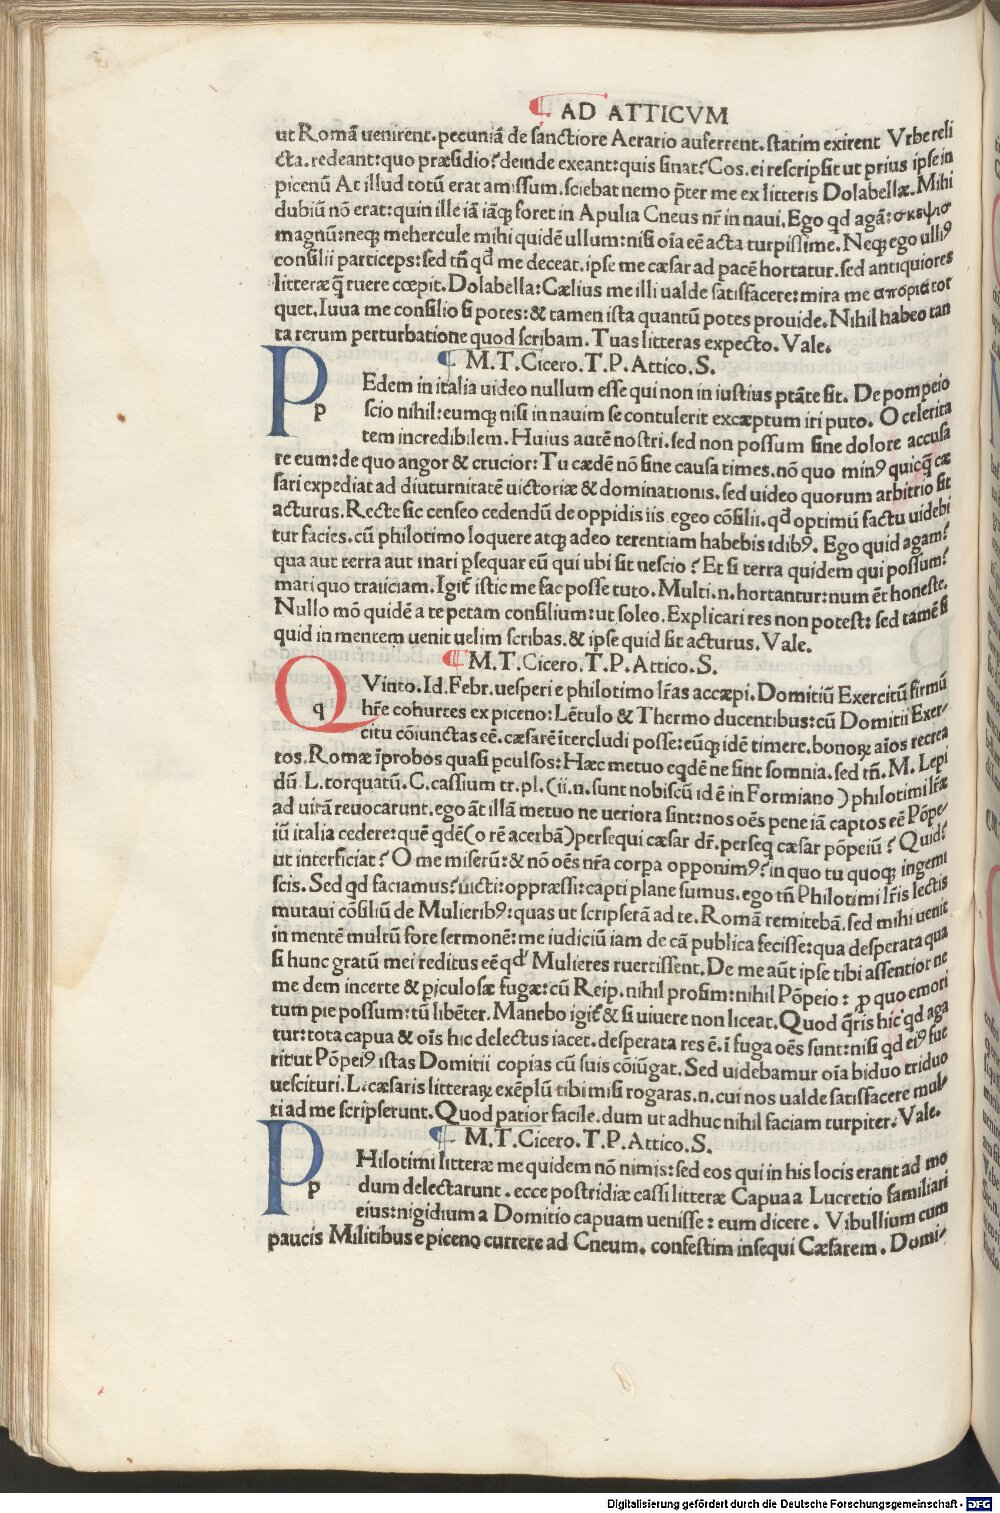 ¶ AD ATTICVM
ut Romā uenirent. pecuniā de sanctiore Aerario auferrent. statim exirent Vrbe reli
cta. redeant: quo præsidio? deinde exeant: quis sinat? Cos. ei rescripsit ut prius ipse in
picenū At illud totū erat amissum. sciebat nemo p̄ter me ex litteris Dolabellæ. Mihi
dubiū nō erat: quin ille iā iāq; foret in Apulia Cneus nr̄ in naui. Ego qd agā: σκεψισ
magnū: neq; mehercule mihi quidē ullum: nisi oīa eē acta turpissime. Neq; ego ulliꝰ
consilii particeps: sed tn̄ qd me deceat. ipse me cæsar ad pacē hortatur. sed antiquiores
litteræ q̄ ruere cœpit. Dolabella: Cælius me illi ualde satisfacere: mira me απορια tor
quet. Iuua me consilio si potes: & tamen ista quantū potes prouide. Nihil habeo tan
ta rerum perturbatione quod scribam. Tuas litteras expecto. Vale.
¶ M. T. Cicero. T. P. Attico. S.
P p Edem in italia uideo nullum esse qui non in iustius ptāte sit. De pompeio
scio nihil: eumq; nisi in nauim se contulerit excæptum iri puto. O celerita
tem incredibilem. Huius autē nostri. sed non possum sine dolore accusa
re eum: de quo angor & crucior: Tu cædē nō sine causa times. nō quo minꝰ quicq̄ cæ
sari expediat ad diuturnitatē uictoriæ & dominationis. sed uideo quorum arbitrio sit
acturus. Recte sic censeo cedendū de oppidis iis egeo cōsilii. qd optimū factu uidebi
tur facies. cū philotimo loquere atq; adeo terentiam habebis idibꝰ. Ego quid agam?
qua aut terra aut mari ꝑsequar eū qui ubi sit nescio? Et si terra quidem qui possum?
mari quo traiiciam. Igit̄ istic me fac posse tuto. Multi. n. hortantur: num ēt honeste.
Nullo mō quidē a te petam consilium: ut soleo. Explicari res non potest: sed tamē si
quid in mentem uenit uelim scribas. & ipse quid sit acturus. Vale.
¶ M. T. Cicero. T. P. Attico. S.
Q q Vinto. Id. Febr. uesperi e philotimo lr̄as accæpi. Domitiū Exercitū firmū
hr̄e cohurtes ex piceno: Lētulo & Thermo ducentibus: cū Domitii Exer-
citu cōiunctas eē. cæsarē ītercludi posse: eūq; idē timere. bonoꝝ aīos recrea
tos. Romæ īprobos quasi ꝑculsos: Hæc metuo eqdē ne sint somnia. sed tn̄. M. Lepi
dū. L. torquatū. C. cassium tr. pl. (ii. n. sunt nobiscū idē in Formiano) philotimi lr̄æ
ad uitā reuocarunt. ego āt illā metuo ne ueriora sint: nos oēs pene iā captos eē Pōpe-
iū italia cedere: quē qdē (o rē acerbā) persequi cæsar dr̄. perseq cæsar pōpeiū? Quid?
ut interficiat? O me miserū: & nō oēs nr̄a corpa opponimꝰ? in quo tu quoq; ingemi
scis. Sed qd faciamus? uicti: oppræssi: capti plane sumus. ego tn̄ Philotimi lr̄is lectis
mutaui cōsiliū de Mulieribꝰ: quas ut scripserā ad te. Romā remitebā. sed mihi uenit
in mentē multū fore sermonē: me iudiciū iam de cā publica fecisse: qua desperata qua
si hunc gratū mei reditus eē qd Mulieres ruertissent. De me aūt ipse tibi assentior ne
me dem incerte & ꝑiculosæ fugæ: cū Reip. nihil prosim: nihil Pōpeio: ꝓ quo emori
tum pie possum: tū libēter. Manebo igit̄ & si uiuere non liceat. Quod q̄ris hic qd aga
tur: tota capua & oīs hic delectus iacet. desperata res ē. ī fuga oēs sunt: nisi qd eiꝰ fue
rit ut Pōpeiꝰ istas Domitii copias cū suis cōiūgat. Sed uidebamur oīa biduo triduo
uescituri. L. cæsaris litteraꝝ exēplū tibi misi rogaras. n. cui nos ualde satisfacere mul-
ti ad me scripserunt. Quod patior facile. dum ut adhuc nihil faciam turpiter. Vale.
¶ M. T. Cicero. T. P. Attico. S.
P p Hilotimi litteræ me quidem nō nimis: sed eos qui in his locis erant ad mo
dum delectarunt. ecce postridiæ cassi litteræ Capua a Lucretio familiari
eius: nigidium a Domitio capuam uenisse: eum dicere. Vibullium cum
paucis Militibus e piceno currere ad Cneum. confestim insequi Cæsarem. Domi-
Digitalisierung gefördert durch die Deutsche Forschungsgemeinschaft - DFG